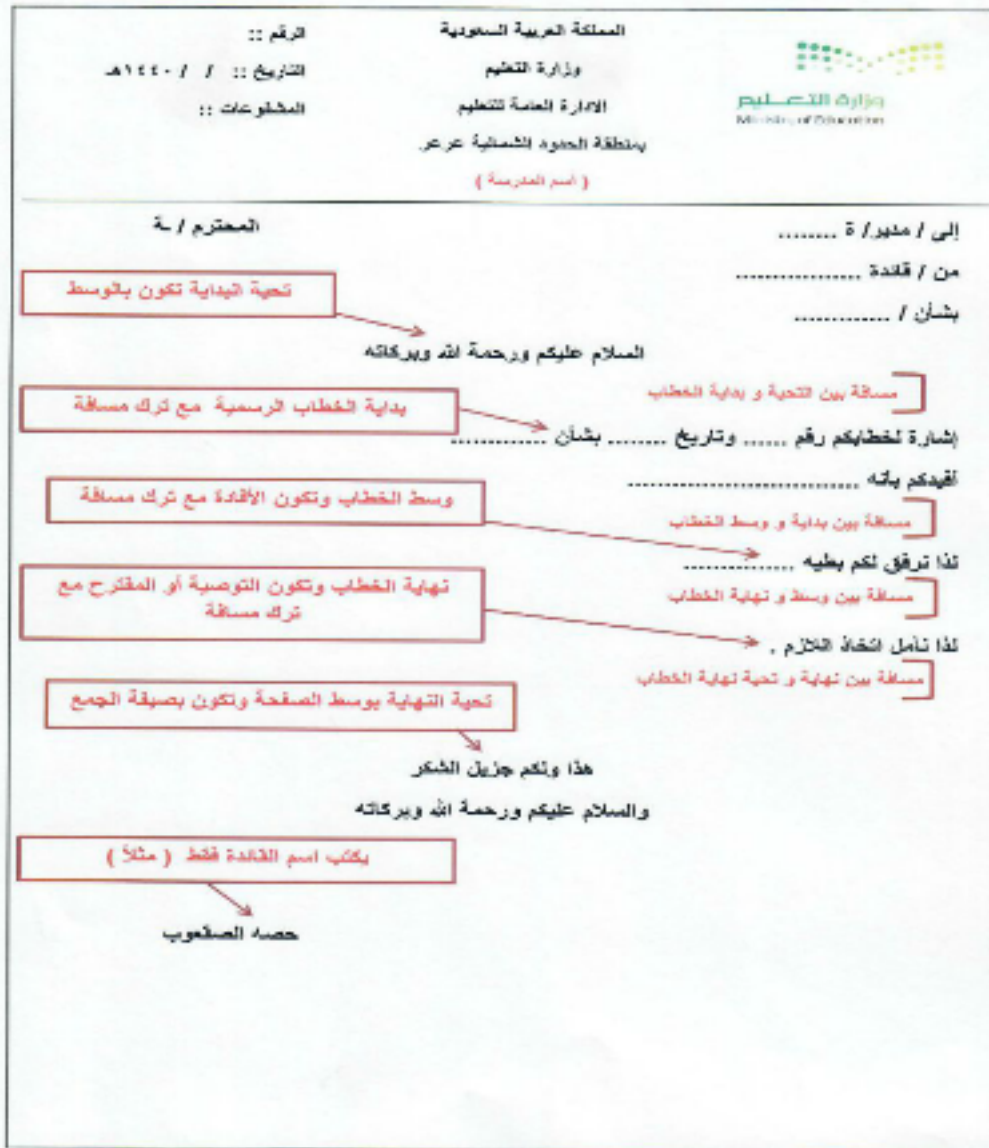 المملكة العربية السعودية
وزارة التعليم
الادارة العامة للتعليم
بمنطقة الحدود الشمالية عرعر
( اسم المدرسة )
الرقم ::
التاريخ :: / / ١٤٤٠هـ
المشفوعات ::
وزارة التعليم
Ministry of Education
إلى / مدير/ ة ........ المحترم / ـة
من / قائدة ................
بشأن / ............
تحية البداية تكون بالوسط
السلام عليكم ورحمة الله وبركاته
مسافة بين التحية و بداية الخطاب
بداية الخطاب الرسمية مع ترك مسافة
إشارة لخطابكم رقم ...... وتاريخ ........ بشأن .............
أفيدكم بأنه ..............................
وسط الخطاب وتكون الأفادة مع ترك مسافة
مسافة بين بداية و وسط الخطاب
لذا نرفق لكم بطيه ...............
نهاية الخطاب وتكون التوصية أو المقترح مع
ترك مسافة
مسافة بين وسط و نهاية الخطاب
لذا نأمل اتخاذ اللازم .
مسافة بين نهاية و تحية نهاية الخطاب
تحية النهاية بوسط الصفحة وتكون بصيغة الجمع
هذا ولكم جزيل الشكر
والسلام عليكم ورحمة الله وبركاته
يكتب اسم القائدة فقط ( مثلاً )
حصه الصقعوب